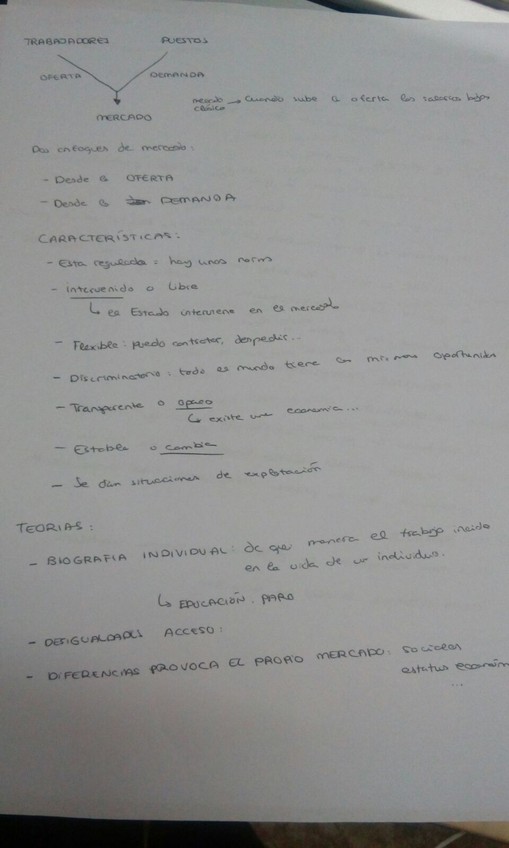 TRABAJADORES PUESTOS
OFERTA DEMANDA
MERCADO
mercado clásico → Cuando sube la oferta los salarios bajan
Dos enfoques de mercado:
- Desde la OFERTA
- Desde la DEMANDA
CARACTERÍSTICAS:
- Esta regulado: hay unas normas
- intervenido o libre
↳ el Estado interviene en el mercado
- Flexible: puedo contratar, despedir..
- Discriminatorio: todo el mundo tiene las mismas oportunidades
- Transparente o opaco
↳ existe una economia...
- Estable o cambia
- Se dan situaciones de explotación
TEORIAS:
- BIOGRAFIA INDIVIDUAL: de que manera el trabajo incide
en la vida de un individuo.
↳ EDUCACIÓN. PARO
- DESIGUALDADES ACCESO:
- DIFERENCIAS PROVOCA EL PROPIO MERCADO: sociales
estatus económ
...